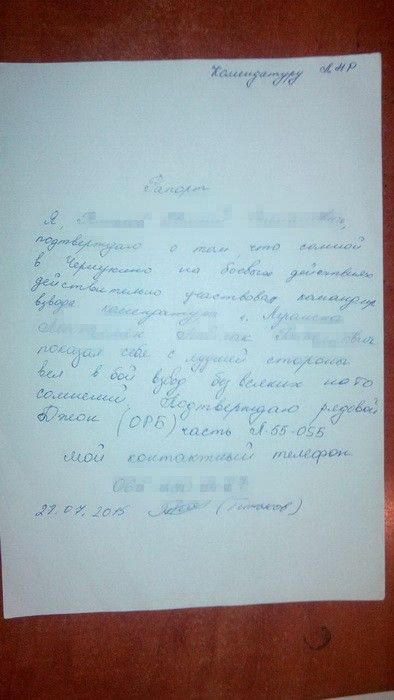 Комендатуру ЛНР
Рапорт
Я,
подтверждаю о том, что сомной
в Чернукино на боевых действиях
действительно участвовал командир
взвода комендатуры г. Луганска
так
показал себя с лудшей стороны
вел в бой взвод без всяких на то
сомнений. Подтверждаю рядовой
Джон (ОРБ) часть А-55-055
мой контактный телефон
21.07.2015